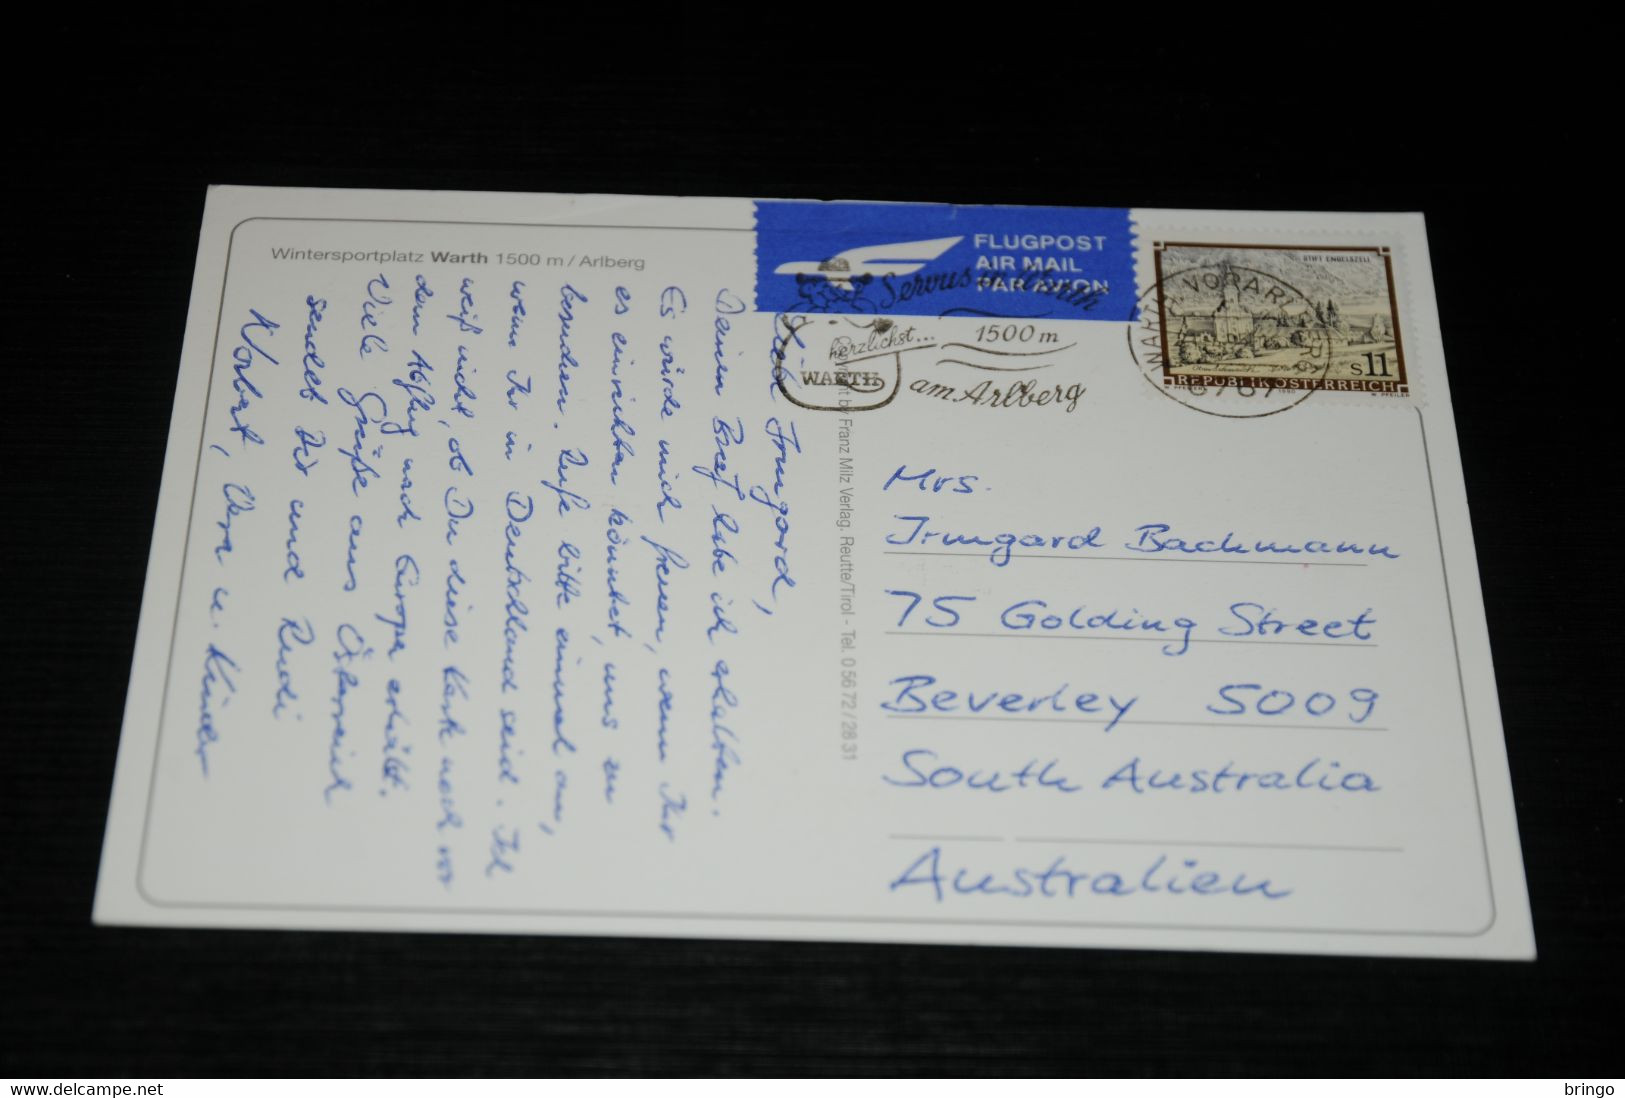 Wintersportplatz Warth 1500 m / Arlberg
FLUGPOST
AIR MAIL
PAR AVION
Servus in Warth
herzlichst...
1500 m
WARTH
am Arlberg
STIFT ENGELSZELL
S 11
REPUBLIK ÖSTERREICH
Liebe Irmgard,
Deinen Brief habe ich erhalten.
Es würde mich freuen, wenn Ihr
es einrichten könntet, uns zu
besuchen. Rufe bitte einmal an,
wenn Ihr in Deutschland seid. Ich
weiß nicht, ob Du diese Karte noch vor
dem Abflug nach Europa erhältst.
Viele Grüße aus Österreich
sendet Dir und Rudi
Norbert, u. Kinder
by Franz Milz Verlag. Reutte/Tirol - Tel. 0 56 72 / 28 31
Mrs.
Irmgard Bachmann
75 Golding Street
Beverley 5009
South Australia
Australien
bringo